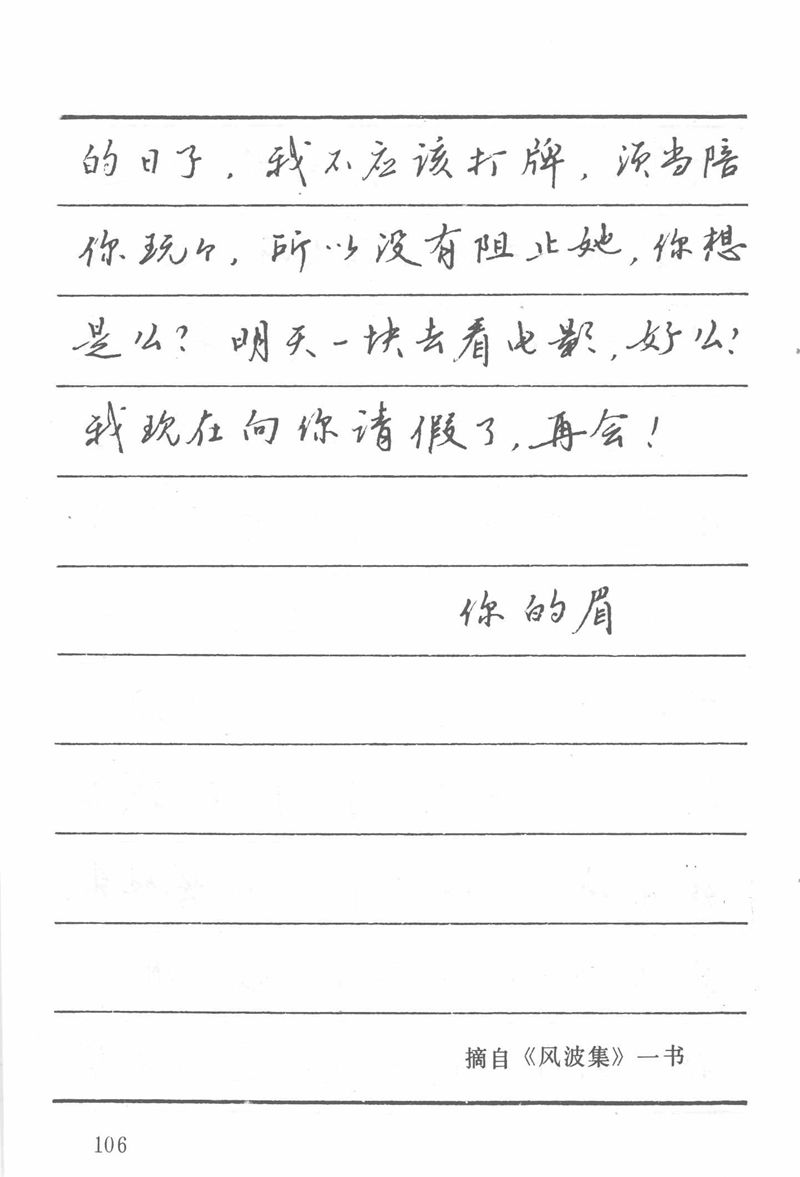 的日子，我不应该打牌，须当陪
你玩々，所以没有阻止她，你想
是么？明天一块去看电影，好么？
我现在向你请假了，再会！
你的眉
摘自《风波集》一书
106